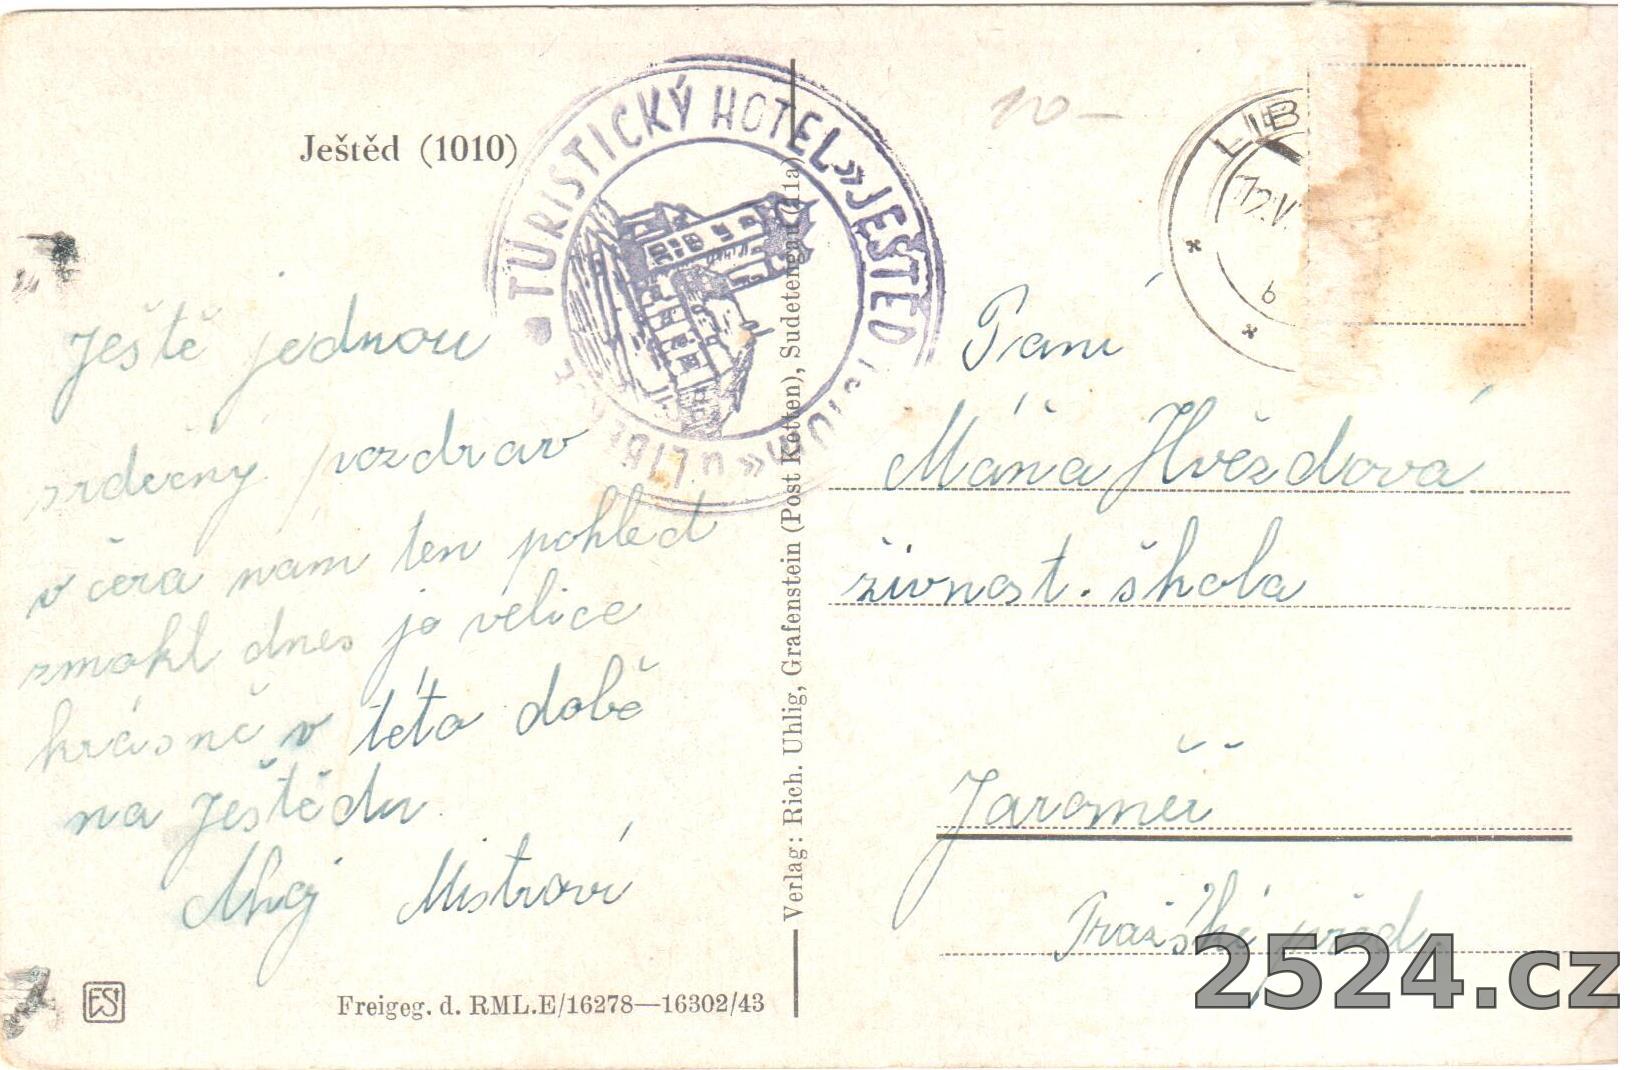 Ještěd (1010)
TURISTICKÝ HOTEL »JEŠTĚD
10–
LIB
12.V.
6
Ještě jednou
srdečný pozdrav
včera nám ten pohled
zmokl dnes je velice
krásně v této době
na Ještědu.
Ahoj Mistrovi
Freigeg. d. RML.E/16278—16302/43
Verlag: Rich. Uhlig, Grafenstein (Post Ketten), Sudetengau (11a)
Paní
Máňa Hvězdová
živnost. škola
Jaroměř
Pražské před.
2524.cz